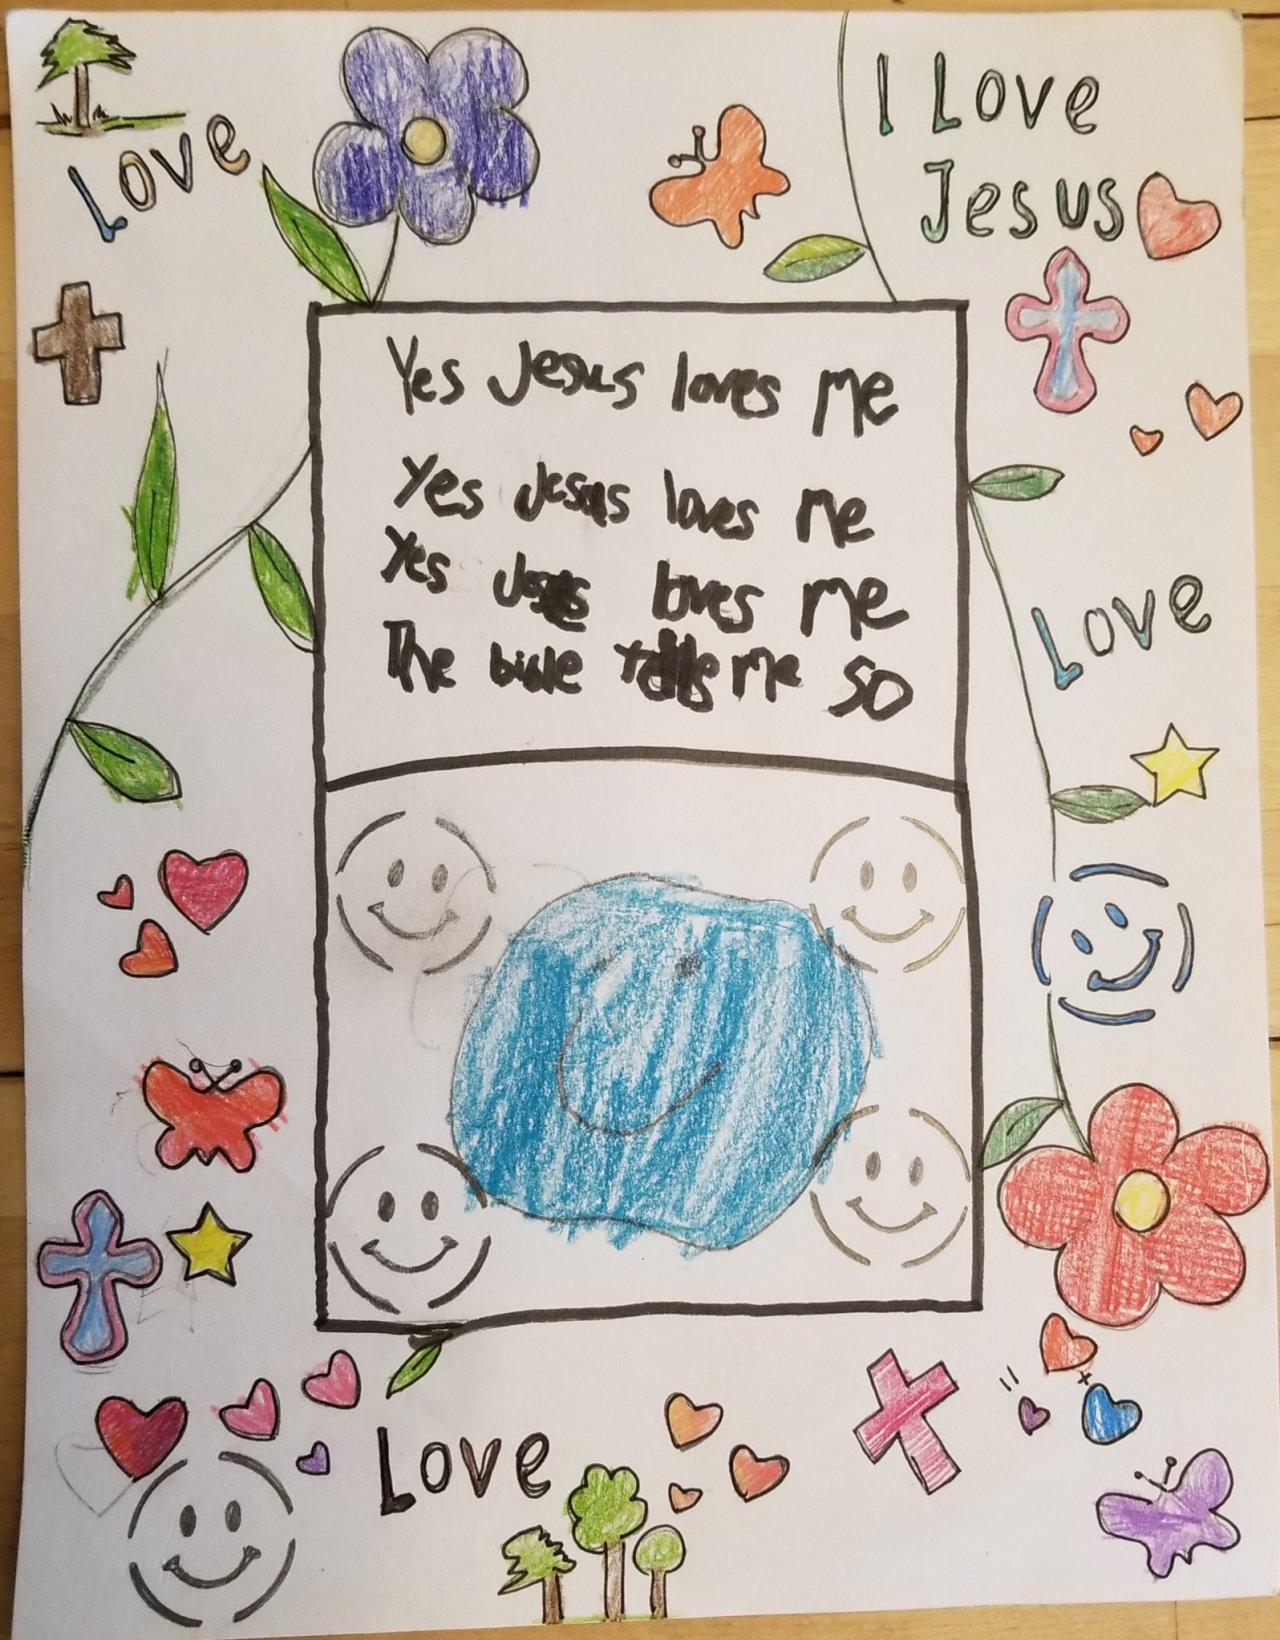 Love
I Love
Jesus
Yes Jesus loves me
Yes Jesus loves me
Yes Jesus loves me
The bible tells me so
Love
Love